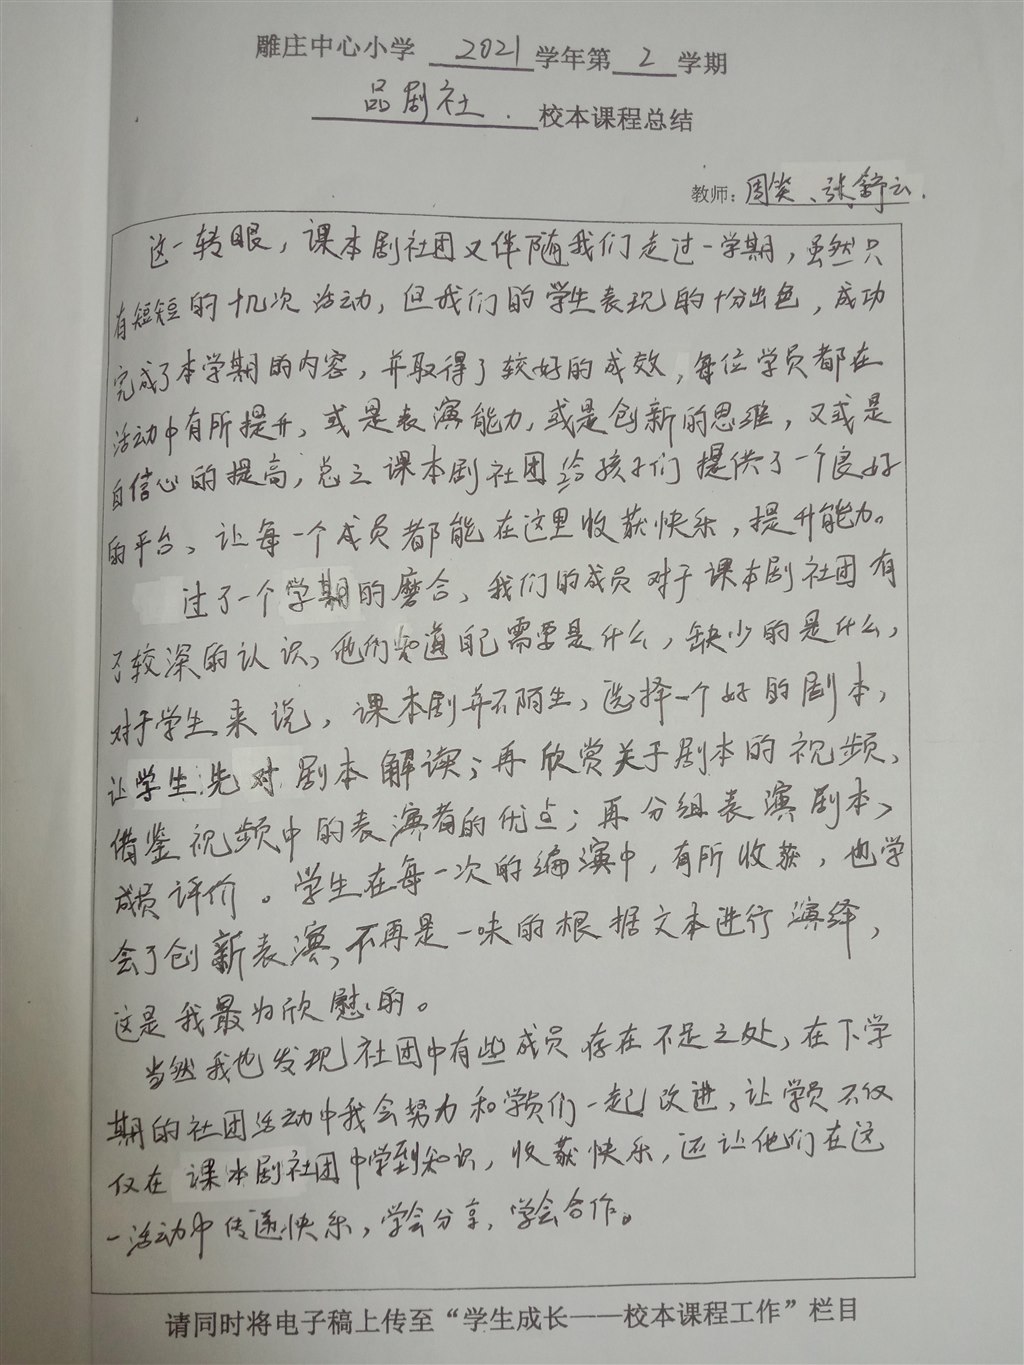 雕庄中心小学 2021 学年第 2 学期
品剧社. 校本课程总结
教师:周笑、张舒云.
这一转眼，课本剧社团又伴随我们走过一学期，虽然只
有短短的十几次活动，但我们的学生表现的十分出色，成功
完成了本学期的内容，并取得了较好的成效，每位学员都在
活动中有所提升，或是表演能力，或是创新的思维，又或是
自信心的提高，总之课本剧社团给孩子们提供了一个良好
的平台、让每一个成员都能在这里收获快乐，提升能力。
过了一个学期的磨合，我们的成员对于课本剧社团有
了较深的认识，他们知道自己需要是什么，缺少的是什么，
对于学生来说，课本剧并不陌生，选择一个好的剧本，
让学生先对剧本解读；再欣赏关于剧本的视频、
借鉴视频中的表演者的优点；再分组表演剧本、
成员评价。学生在每一次的编演中，有所收获，也学
会了创新表演，不再是一味的根据文本进行演绎，
这是我最为欣慰的。
当然我也发现社团中有些成员存在不足之处，在下学
期的社团活动中我会努力和学员们一起改进，让学员不仅
仅在课本剧社团中学到知识，收获快乐，还让他们在这
一活动中传递快乐，学会分享，学会合作。
请同时将电子稿上传至“学生成长——校本课程工作”栏目